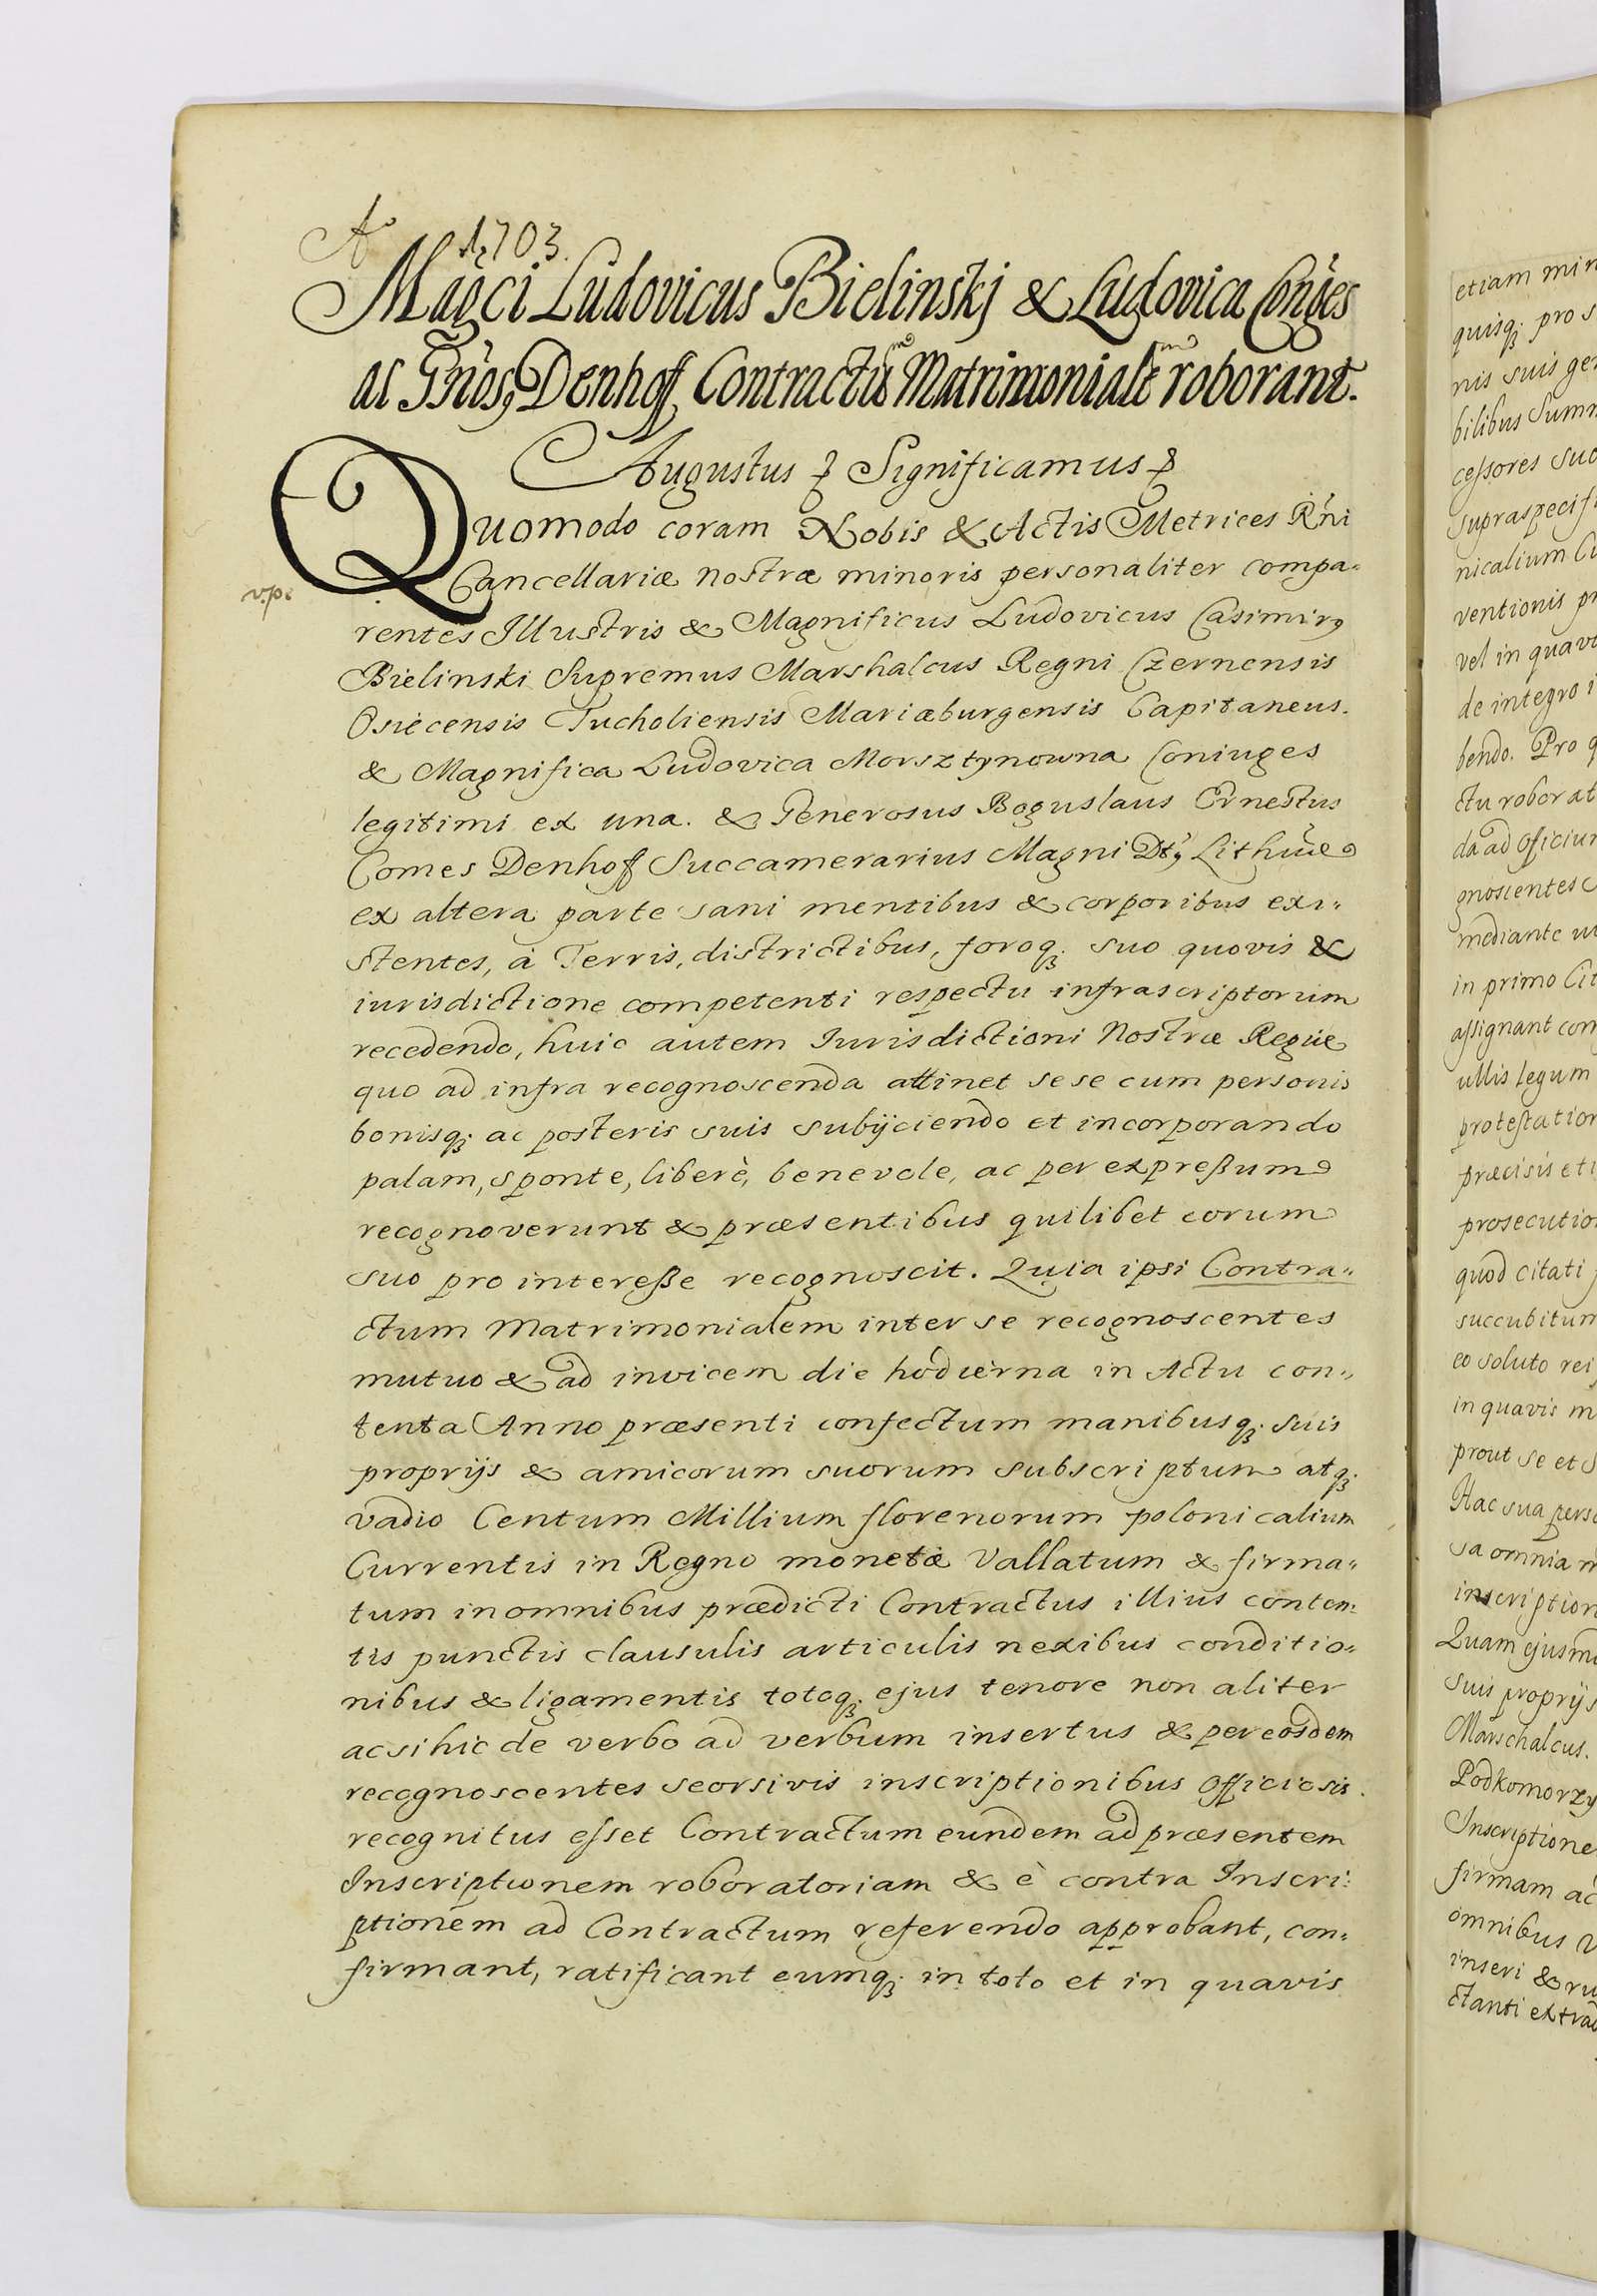 Aº 1703.
Mag̃ci Ludovicus Bielinskj & Ludovica Coñges
ac Gñosꝯ Denhoff Contractũ Matrimonialẽ roborant.
Augustus Significamus
Quomodo coram Nobis & Actis Metrices R̃ni
v.p.
Cancellariæ nostræ minoris personaliter compa-
rentes Illustris & Magnificus Ludovicus Casimirꝯ
Bielinski Supremus Marshalcus Regni Czernensis
Osiecensis Tucholiensis Mariæburgensis Capitaneus.
& Magnifica Ludovica Morsztynowna Coniuges
legitimi ex una. & Generosus Boguslaus Ernestus
Comes Denhoff Succamerarius Magni D̃tꝯ Lithũæ
ex altera parte sani mentibus & corporibus exi-
stentes, à Terris, districtibus, foroqꝫ suo quovis &
iurisdictione competenti respectu infrascriptorum
recedendo, huic autem Iurisdictioni Nostræ Regiæ
quo ad infra recognoscenda attinet sese cum personis
bonisqꝫ ac posteris suis subijciendo et incorporando
palam, sponte, liberè, benevole, ac per expreßum
recognoverunt & præsentibus quilibet eorum
suo pro intereße recognoscit. Quia ipsi Contra-
ctum Matrimonialem inter se recognoscentes
mutuo & ad invicem die hodierna in Actu con-
tenta Anno præsenti confectum manibusqꝫ suis
proprijs & amicorum suorum subscriptum atqꝫ
vadio Centum Millium florenorum polonicalium
Currentis in Regno monetæ Vallatum & firma-
tum in omnibus prædicti Contractus illius conten-
tis punctis clausulis articulis nexibus conditio-
nibus & ligamentis totoqꝫ ejus tenore non aliter
acsi hic de verbo ad verbum insertus & per eosdem
recognoscentes seorsivis inscriptionibus officiosis
recognitus esset Contractum eundem ad præsentem
Inscriptionem roboratoriam & è contra Inscri-
ptionem ad Contractum referendo approbant, con-
firmant, ratificant eumqꝫ in toto et in quavis
etiam
quisqꝫ pro
nis suis
bilibus
cessores
nicalium
ventionis
vel in
de integro
bendo. Pro
ctu
da ad
gnoscentes
mediante
in primo
assignant
ullis legum
præcisis
quod citati
eo soluto
in quavis
prout se et
Hac sua
sa omnia
Quam
suis proprijs
Marschalcus.
firmam
omnibus
inseri &